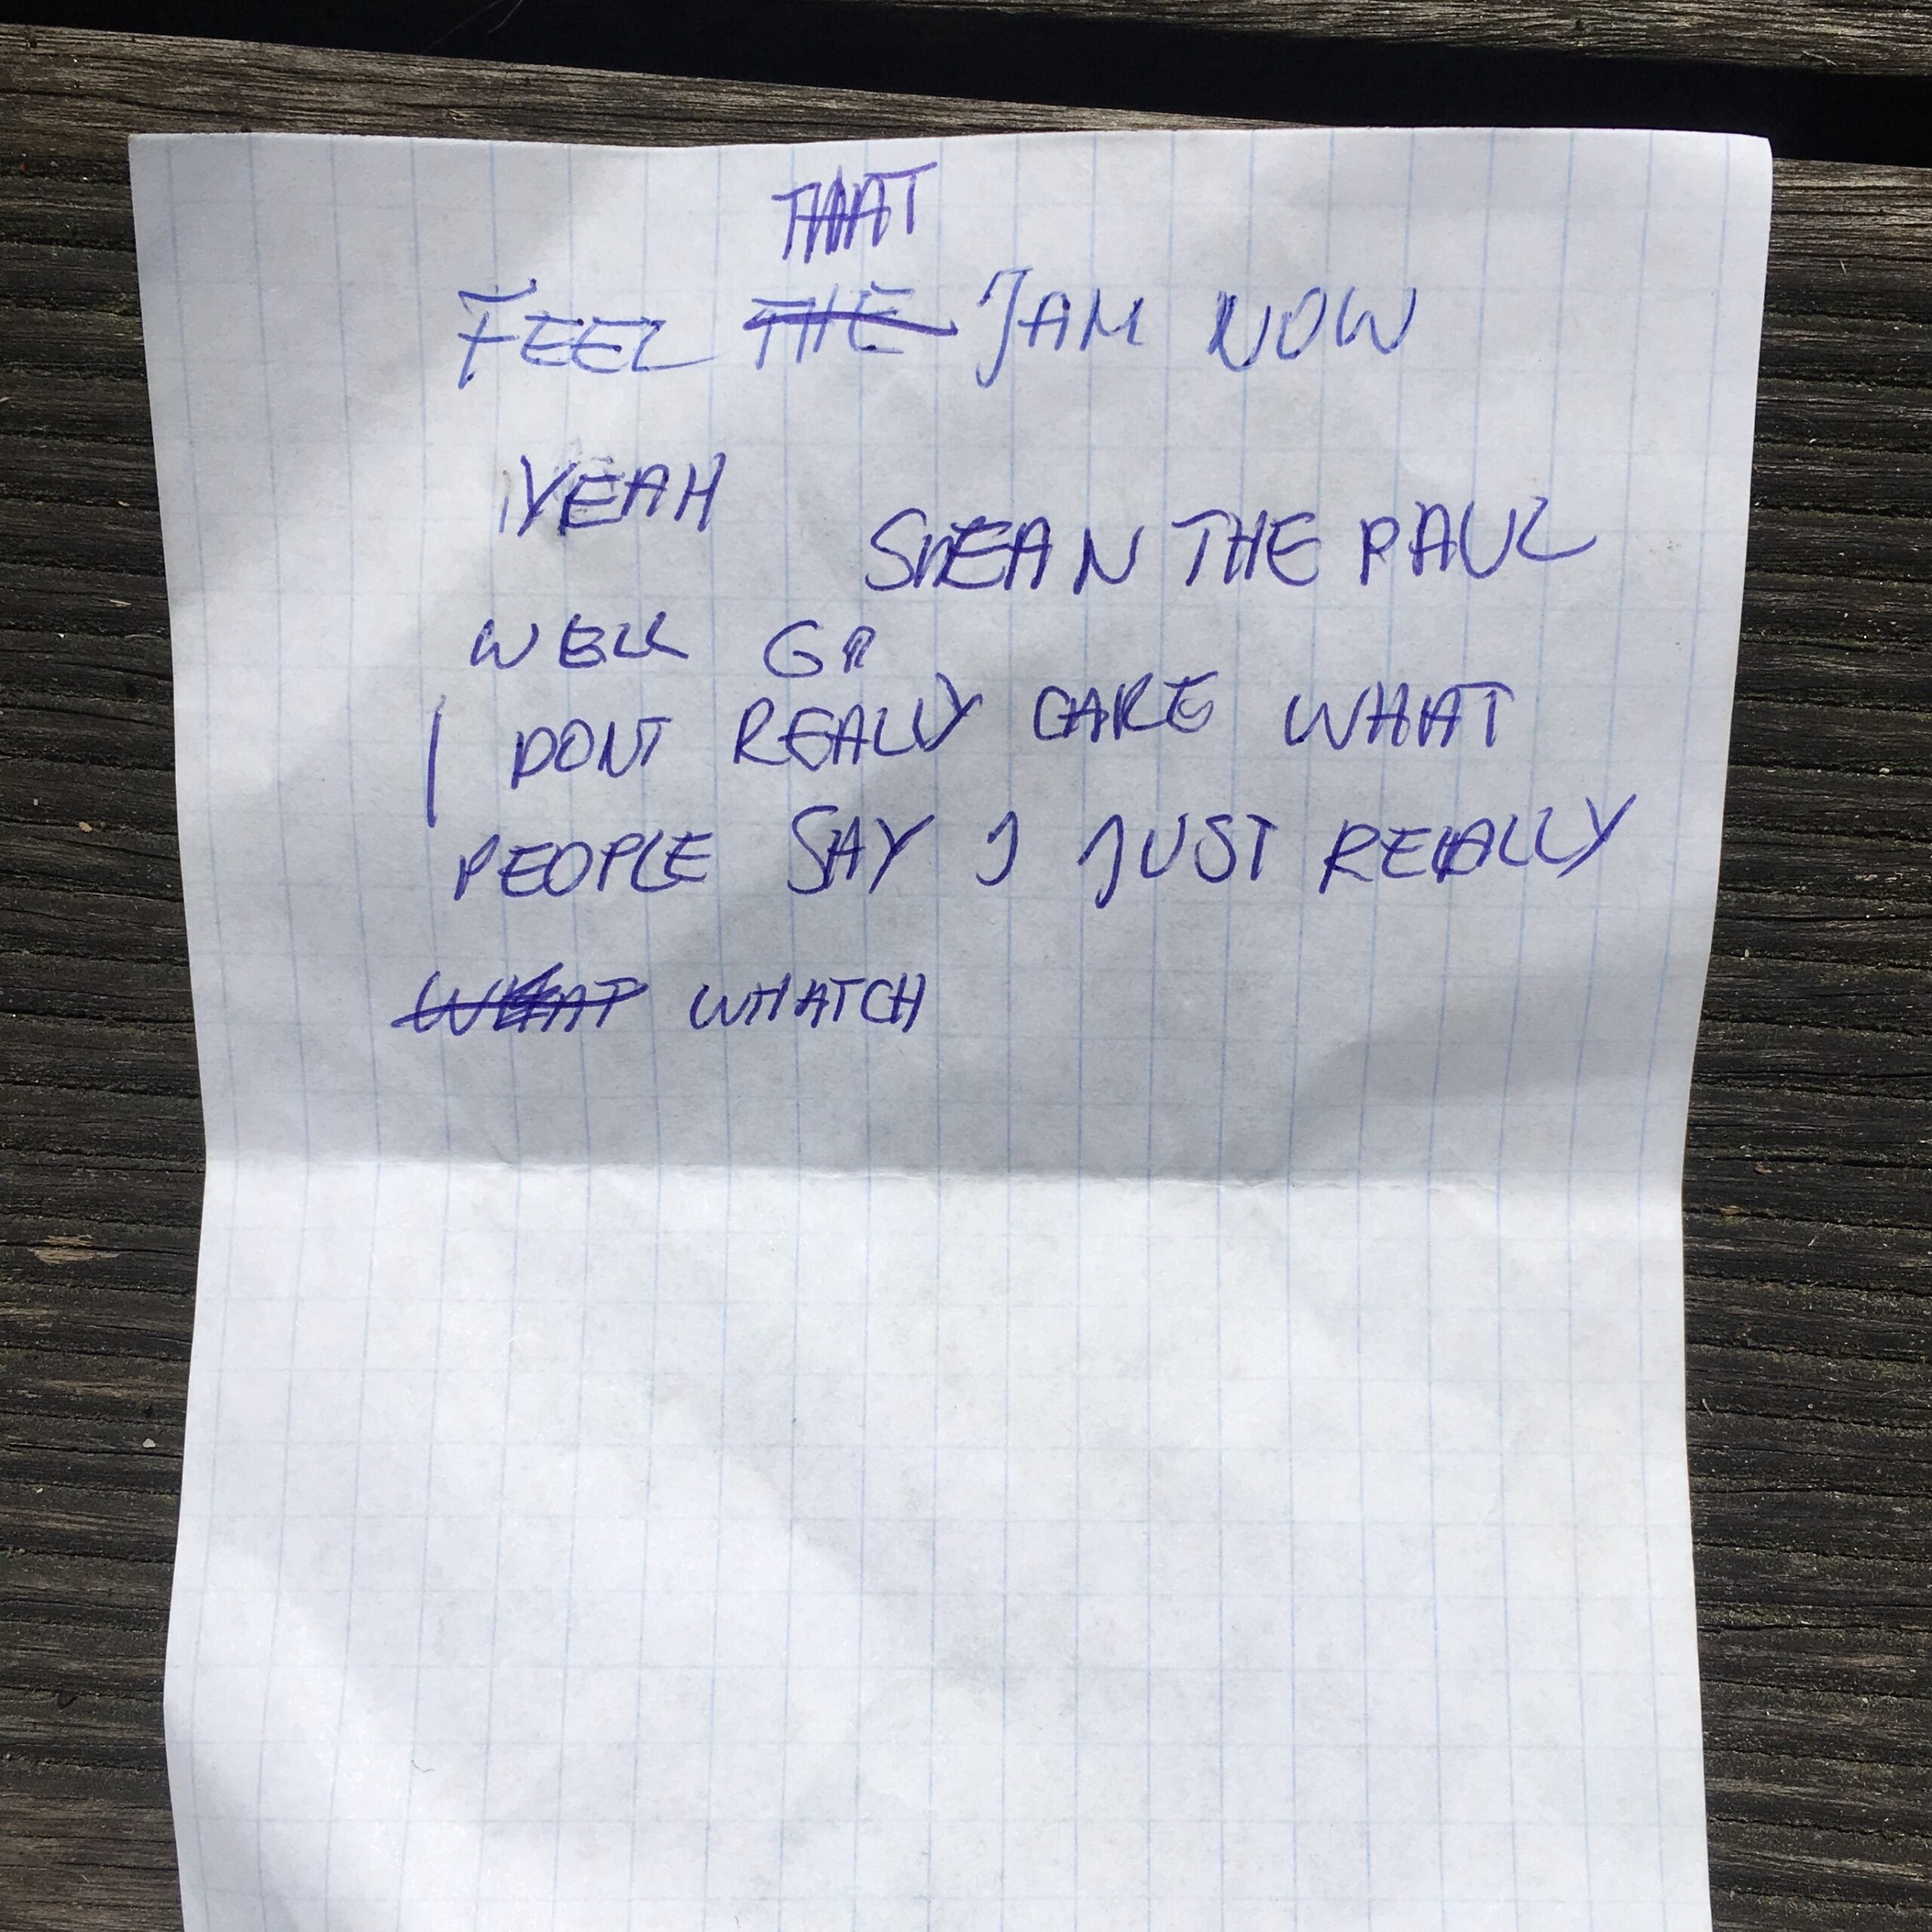 THAT
FEEL THE JAM NOW
YEAH
SHEAN THE PAUL
WELL GR
I DONT REALLY CARE WHAT
PEOPLE SAY I JUST REALLY
WHAT WHATCH